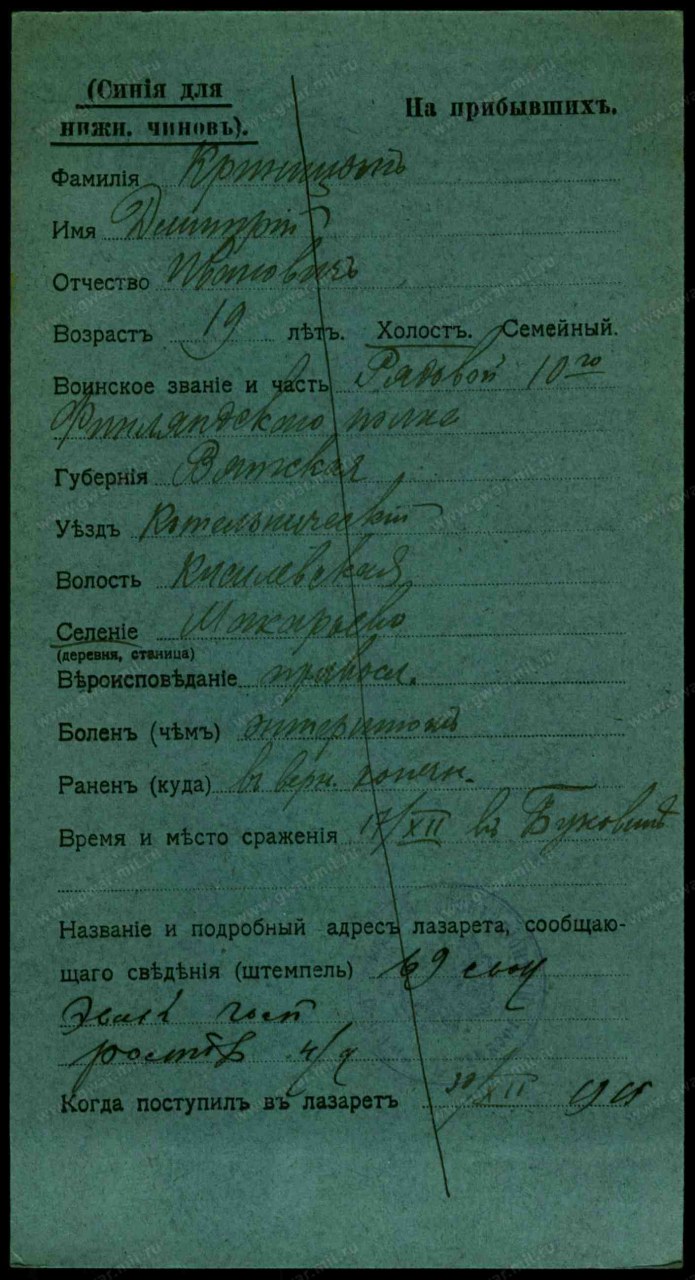 (Синія для
нижн. чиновъ).
На прибывшихъ.
Фамилія
Имя Дмитрій
Отчество Ивановичъ
Возрастъ 19 лѣтъ. Холостъ. Семейный.
Воинское званіе и часть Рядовой 10го
Финляндскаго полка
Губернія Вятская
Уѣздъ Котельническій
Волость Киселевская
Селеніе Макарьево
(деревня, станица)
Вѣроисповѣданіе правосл.
Боленъ (чѣмъ) энтеритомъ
Раненъ (куда) въ верх. конечн.
Время и мѣсто сраженія 17/XII въ Буковинѣ
Названіе и подробный адресъ лазарета, сообщаю-
щаго свѣдѣнія (штемпель) 69
эвак
Ростовъ н/Д
Когда поступилъ въ лазаретъ 30/XII 1915
www.gwar.mil.ru